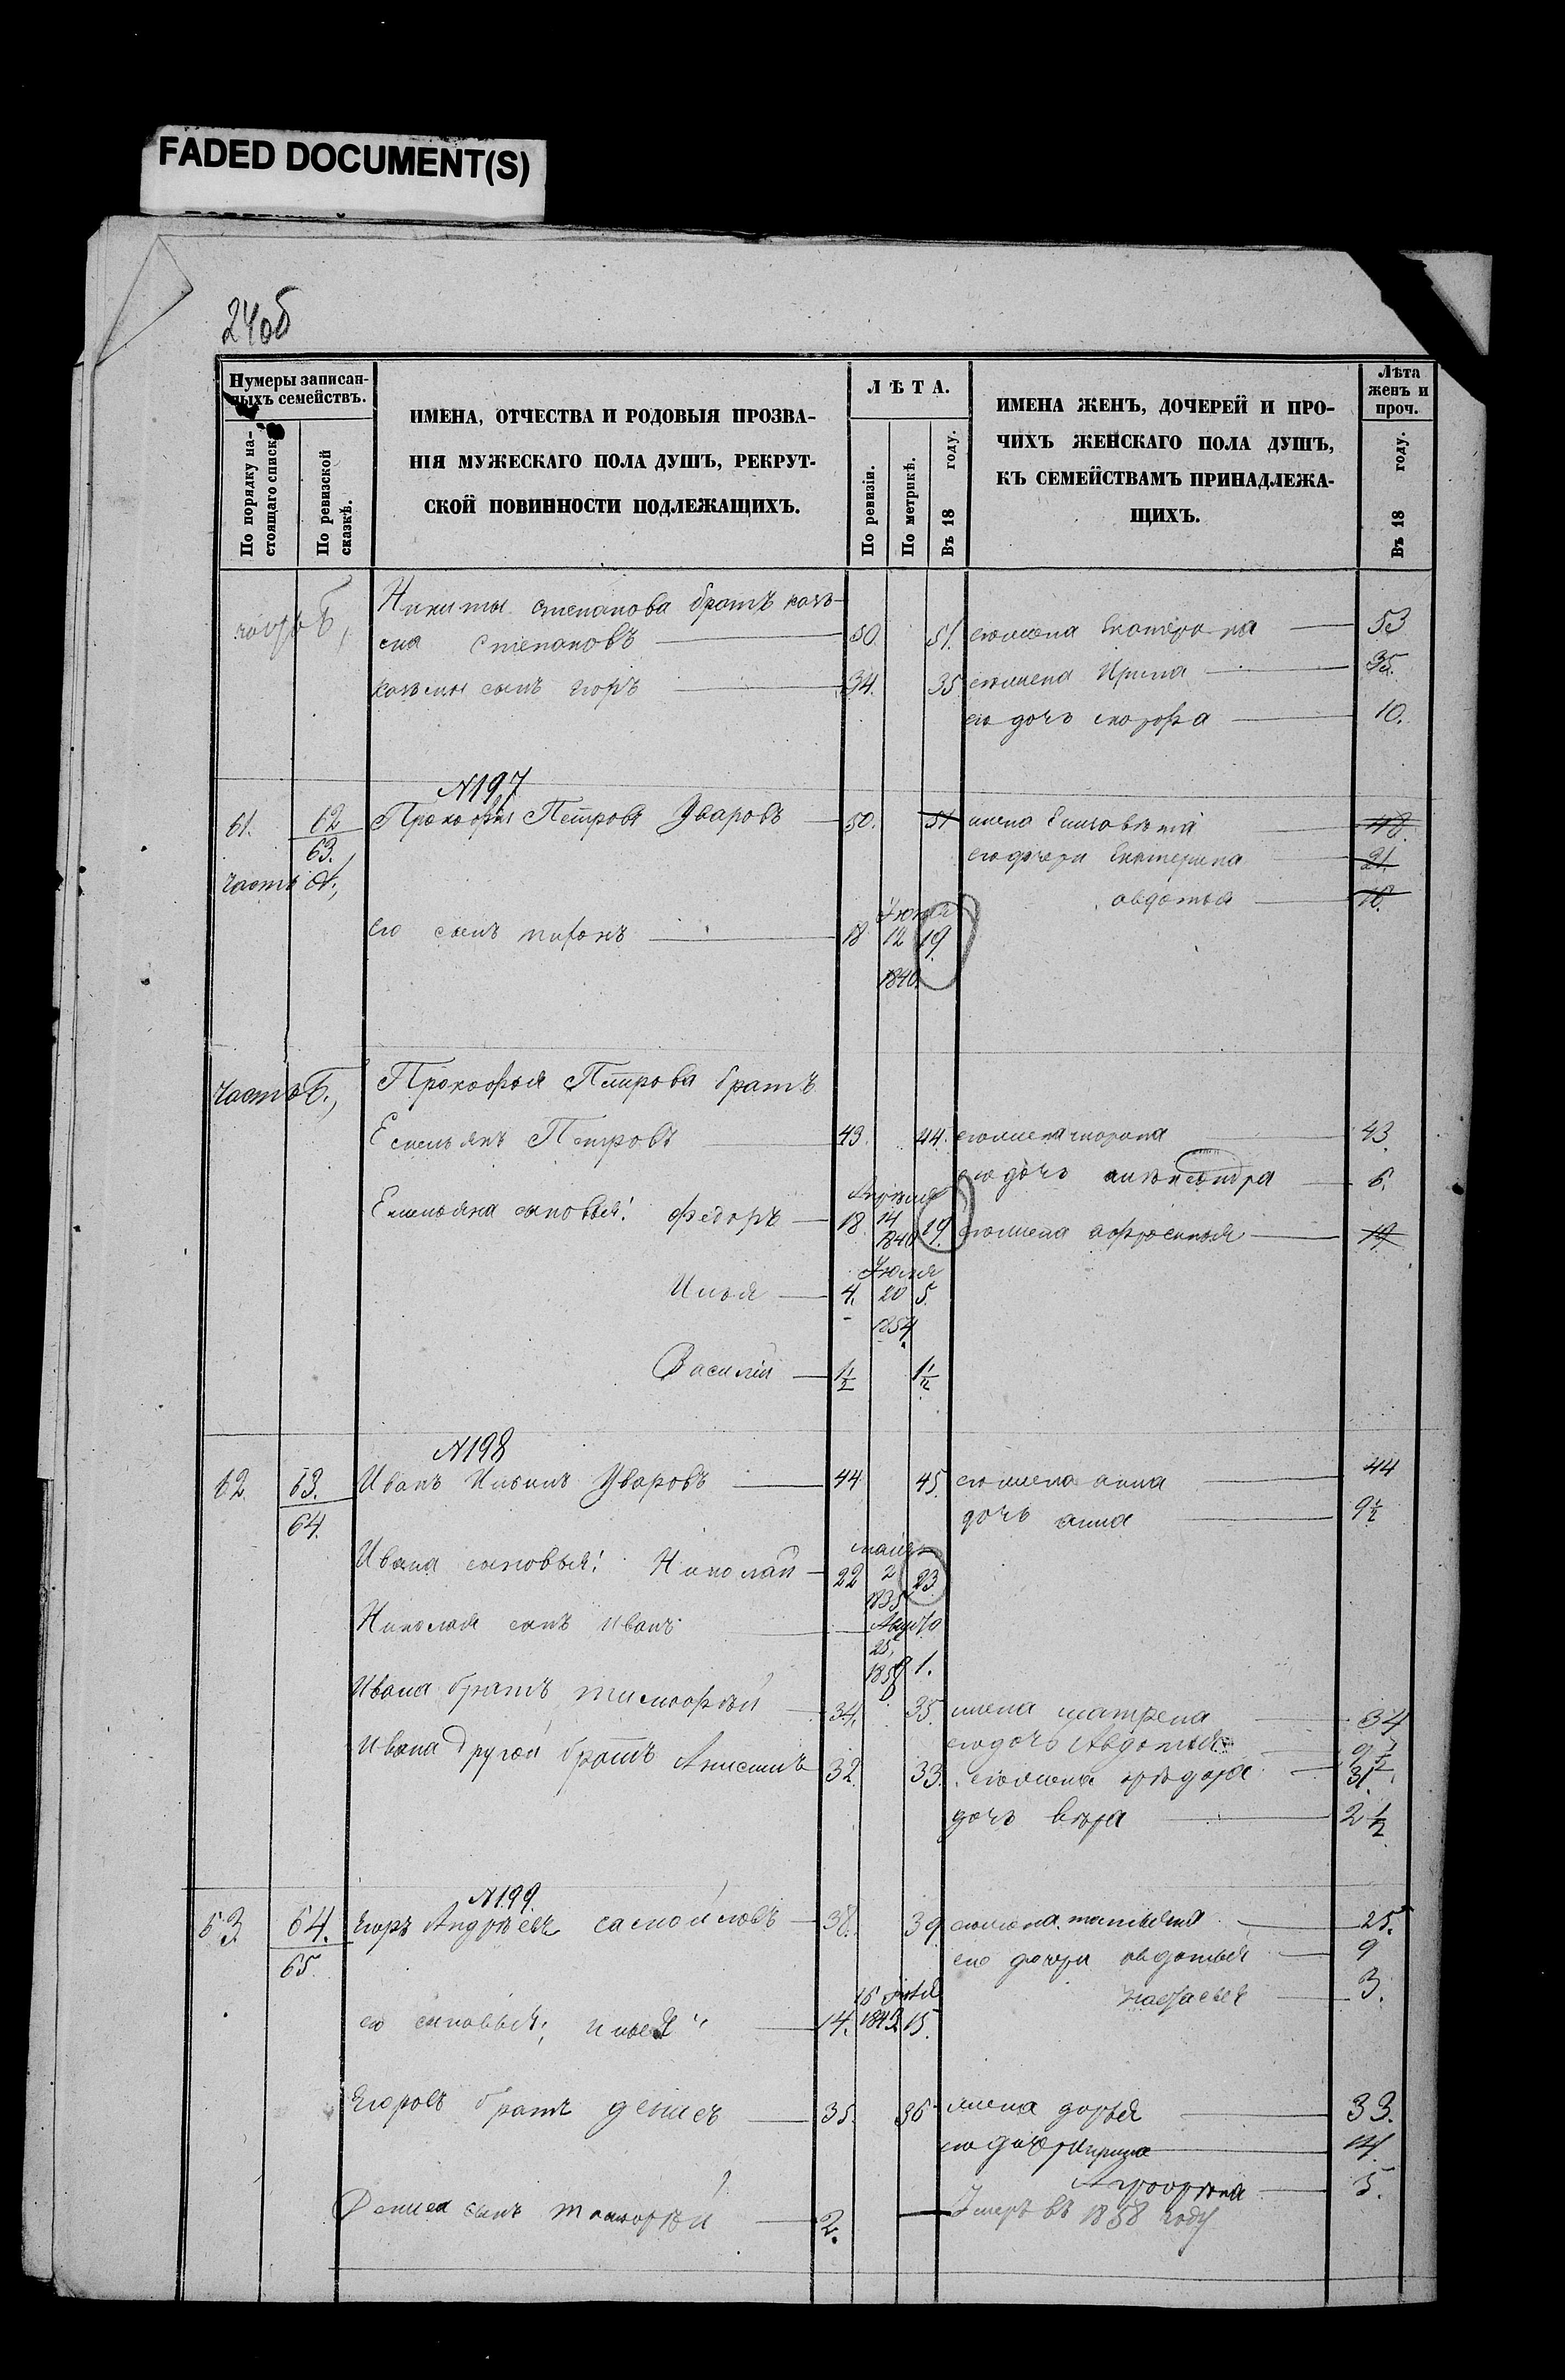 FADED DOCUMENT(S)
24об
Нумеры записан-
ныхъ семействъ.
По порядку на-
стоящаго списк
По ревизской
сказкѣ.
ИМЕНА, ОТЧЕСТВА И РОДОВЫЯ ПРОЗВА-
НІЯ МУЖЕСКАГО ПОЛА ДУШЪ, РЕКРУТ-
СКОЙ ПОВИННОСТИ ПОДЛЕЖАЩИХЪ.
ЛѢТА.
По ревизіи.
По метрикѣ.
Въ 18 году.
ИМЕНА ЖЕНЪ, ДОЧЕРЕЙ И ПРО-
ЧИХЪ ЖЕНСКАГО ПОЛА ДУШЪ,
КЪ СЕМЕЙСТВАМЪ ПРИНАДЛЕЖА-
ЩИХЪ.
Лѣта
женъ и
проч.
Въ 18 году.
Никиты степанова братъ козь-
Б,
ма Степановъ 50. 51. его жена Екатерина 53
козьмы сынъ егоръ 34. 35 его жена Ирина 35.
его дочь 10.
N197
61. 62 Прокофій Петровъ Уваровъ 50. 51 жена Елизавѣта 48.
63.
его дочери Екатерина 21.
часть А,
авдотья 18.
его сынъ 18 12 19
1840.
часть Б., Прокофья Петрова братъ
Емельянъ Петровъ 43. 44. его жена 43.
его дочь александра 6.
Емельяна сыновья: Федоръ 18 Апреля 14 1840 19. его жена 19
Илья 4. Июля 20 1854 5.
Василій 1½ 1½
N198
62. 63. Иванъ Ильинъ Уваровъ 44 45. его жена анна 44
64.
дочь анна 9½
Ивана сыновья: Николай 22 маія 2 1835 23
Николая сынъ Иванъ 25, 1858 1.
Ивана братъ тимофѣй 34. 35. жена матрена 34
его дочь Авдотья 9½
Ивана другой братъ Анисимъ 32. 33. его жена ѳедора 31.
дочь вѣра 2½
N199
63. 64. Егоръ Андрѣевъ самойловъ 38. 39 его жена татьяна 25.
65.
его дочери авдотья 9
настасья 3.
его сыновья: илья 14. 15 1843 15.
Егоровъ братъ денисъ 35. 36 жена дарья 33.
его дочери ирина 14.
5.
Дениса сынъ тимофѣй 2. Умеръ въ 1858 году